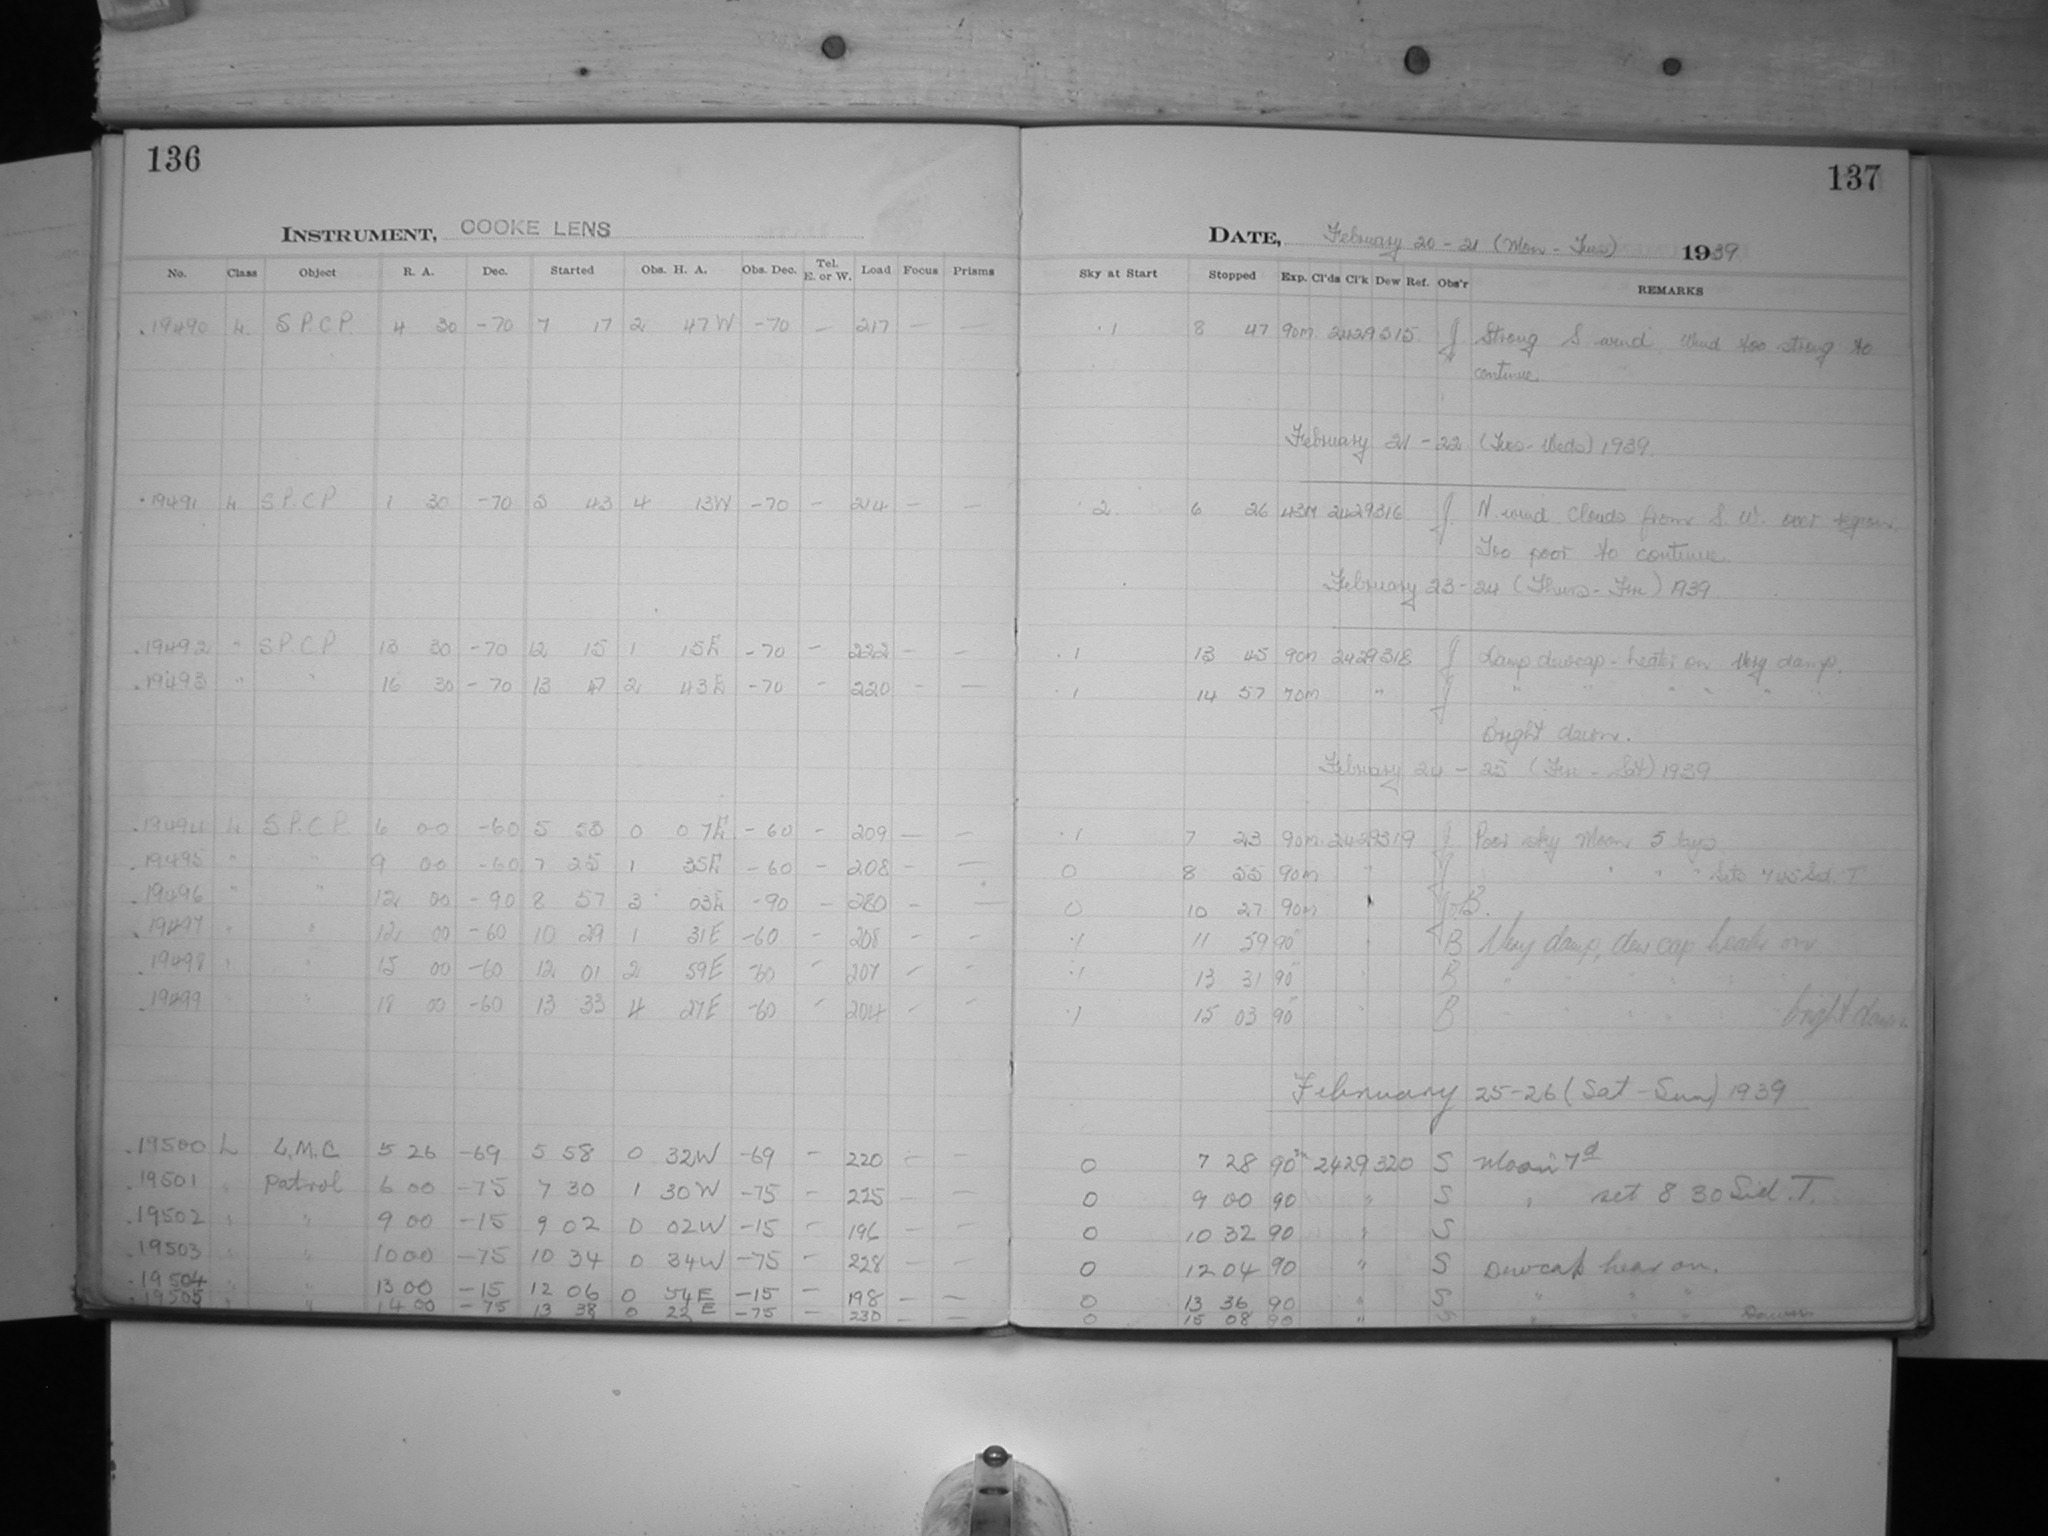 136
137
INSTRUMENT, COOKE LENS
DATE, February 20 - 21 (Mon - Tues) 1939
No. Class Object R. A. Dec. Started Obs. H. A. Obs. Dec. Tel. E. or W. Load Focus Prisms Sky at Start Stopped Exp. Cl'ds Cl'k Dew Ref. Obs'r REMARKS
.19490 L S.P.C.P. 4 30 -70 7 17 2 47W -70 — 217 — — .1 8 47 90m. 2429315. J. Strong S wind. Wind too strong to
continue.
February 21 - 22 (Tues - Weds) 1939.
.19491 L S.P.C.P 1 30 -70 5 43 4 13W -70 - 214 — — .2. 6 26 43M 2429316 J. N. wind. Clouds from S. W. over region.
Too poor to continue.
February 23 - 24 (Thurs - Fri) 1939
.19492 " S.P.C.P 13 30 -70 12 15 1 15E -70 - 222 — — .1 13 45 90m 2429318 J Damp dewcap - heater on. Very damp.
.19493 " " 16 30 -70 13 47 2 43E -70 - 220 — — .1 14 57 70m " J " " " " " "
Bright dawn.
February 24 - 25 (Fri - Sat) 1939
.19494 L S.P.C.P. 6 00 -60 5 53 0 07E -60 - 209 — — .1 7 23 90m. 2429319 J Poor sky Moon 5 days
.19495 " " 9 00 -60 7 25 1 35E -60 - 208 — — 0 8 55 90m " J " " " Sets 745 Sid. T
.19496 " " 12 00 -90 8 57 3 03E -90 - 280 — — 0 10 27 90m J-B.
.19497 " " 12 00 -60 10 29 1 31E -60 - 208 - - .1 11 59 90 " B Very damp, dew cap heater on
.19498 " " 15 00 -60 12 01 2 59E -60 - 207 - - .1 13 31 90 " B "
.19499 " " 18 00 -60 13 33 4 27E -60 - 204 - - .1 15 03 90 " B " " " bright dawn.
February 25-26 (Sat - Sun) 1939
.19500 L L.M.C 5 26 -69 5 58 0 32W -69 - 220 - - 0 7 28 90m 2429320 S Moon 7d
.19501 " Patrol 6 00 -75 7 30 1 30W -75 - 225 - - 0 9 00 90 " S " set 8 30 Sid. T.
.19502 " " 9 00 -15 9 02 0 02W -15 - 196 - - 0 10 32 90 " S
.19503 " " 10 00 -75 10 34 0 34W -75 - 228 - - 0 12 04 90 " S Dewcap heat on.
.19504 " " 13 00 -15 12 06 0 54E -15 - 198 - - 0 13 36 90 " S " " "
.19505 " " 14 00 -75 13 38 0 22E -75 - 230 - - 0 15 08 90 " S " " " Dawn.